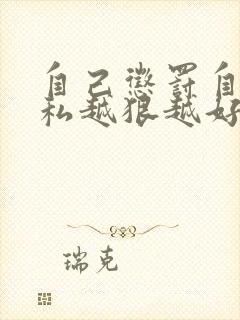 自己惩罚自
私越狠越好
瑞克